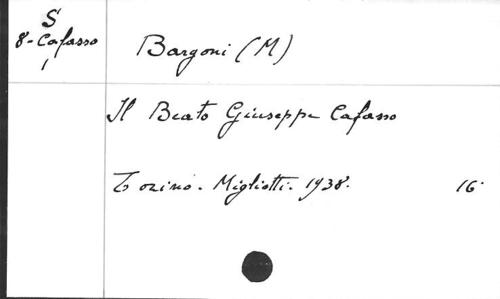 S
8-Cafasso
1
Bargoni (M)
Il Beato Giuseppe Cafasso
Torino. Migliotti. 1938. 16°